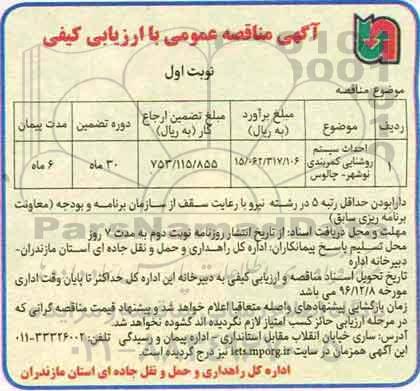 آگهی مناقصه عمومی با ارزیابی کیفی
نوبت اول
موضوع مناقصه
ردیف	موضوع	مبلغ برآورد (به ریال)	مبلغ تضمین ارجاع کار (به ریال)	دوره تضمین	مدت پیمان
۱	احداث سیستم روشنایی کمربندی نوشهر- چالوس	۱۵/۰۶۲/۳۱۷/۱۰۶	۷۵۳/۱۱۵/۸۵۵	۳۰ ماه	۶ ماه
دارابودن حداقل رتبه ۵ در رشته نیرو با رعایت سقف از سازمان برنامه و بودجه (معاونت
برنامه ریزی سابق)
مهلت و محل دریافت اسناد: از تاریخ انتشار روزنامه نوبت دوم به مدت ۷ روز
محل تسلیم پاسخ پیمانکاران: اداره کل راهداری و حمل و نقل جاده ای استان مازندران-
دبیرخانه اداره
تاریخ تحویل اسناد مناقصه و ارزیابی کیفی به دبیرخانه این اداره کل حداکثر تا پایان وقت اداری
مورخه ۹۶/۱۲/۸ می باشد
زمان بازگشایی پیشنهادهای واصله متعاقبا اعلام خواهد شد و پیشنهاد قیمت مناقصه گرانی که
در مرحله ارزیابی حائز کسب امتیاز لازم نگردیده اند گشوده نخواهد شد.
آدرس: ساری خیابان انقلاب مقابل استانداری - اداره پیمان و رسیدگی تلفن: ۳۳۳۲۶۰۰۲-۰۱۱
این آگهی همزمان در سایت iets.mporg.ir نیز درج گردیده است.
اداره کل راهداری و حمل و نقل جاده ای استان مازندران